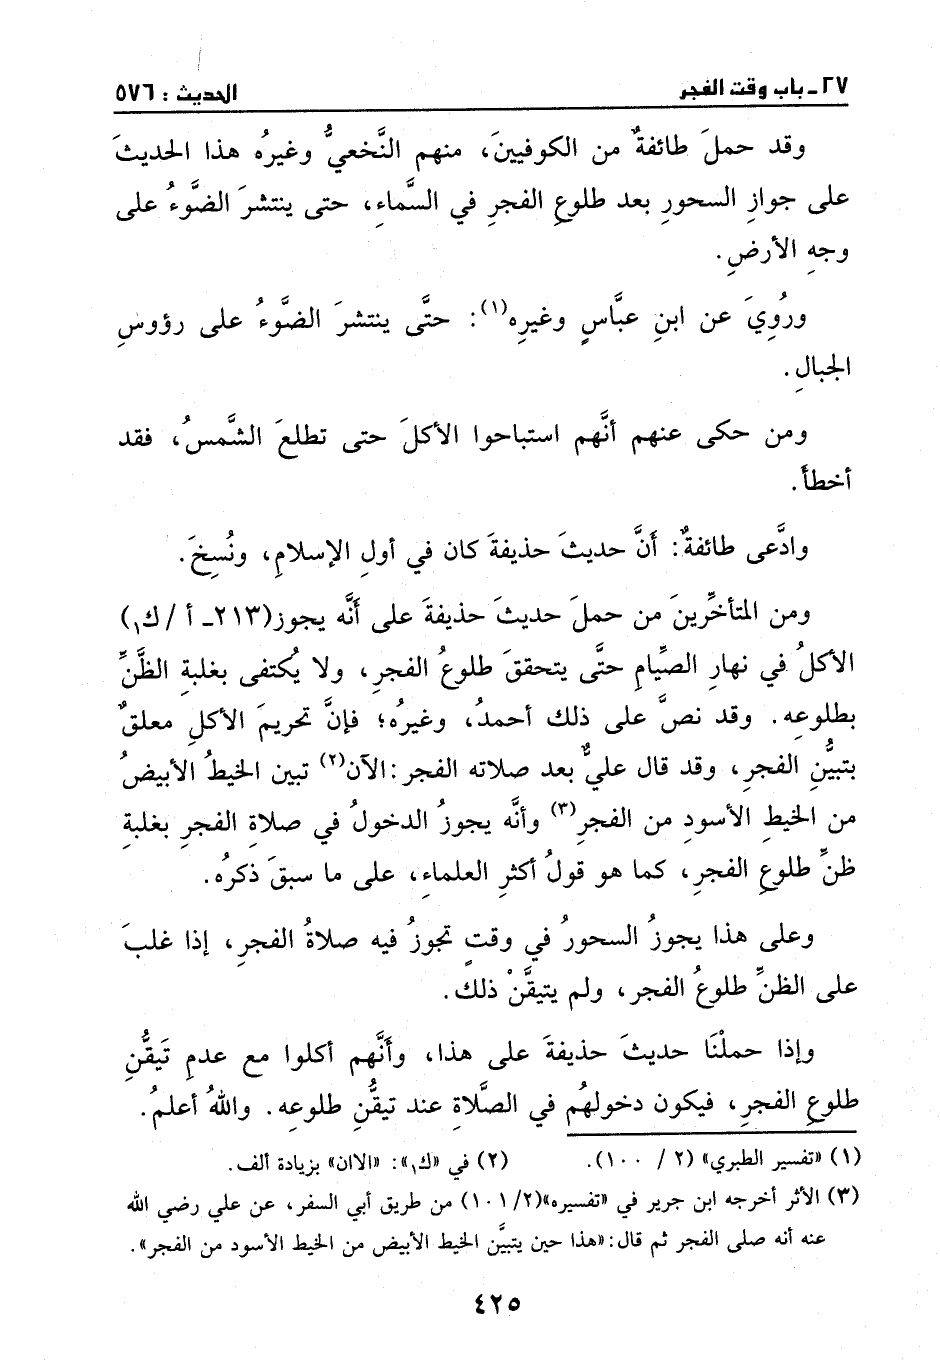 ٢٧ـ باب وقت الفجر
الحديث : ٥٧٦
وقد حملَ طائفةٌ من الكوفيينَ، منهم النَّخعيُّ وغيرُه هذا الحديثَ
على جوازِ السحورِ بعد طلوعِ الفجرِ في السَّماءِ، حتى ينتشرَ الضَّوءُ على
وجهِ الأرضِ.
ورُوِيَ عن ابنِ عبَّاسٍ وغيرِه(١): حتَّى ينتشرَ الضَّوءُ على رؤوسِ
الجبالِ.
ومن حكى عنهم أنَّهم استباحوا الأكلَ حتى تطلعَ الشَّمسُ، فقد
أخطأَ.
وادَّعى طائفةٌ: أَنَّ حديثَ حذيفةَ كان في أولِ الإسلامِ، ونُسِخَ.
ومن المتأخِّرينَ من حملَ حديثَ حذيفةَ على أَنَّه يجوز(٢١٣ـ أ / ك١)
الأكلُ في نهارِ الصِّيامِ حتَّى يتحققَ طلوعُ الفجرِ، ولا يُكتفى بغلبةِ الظَّنِّ
بطلوعِه. وقد نصَّ على ذلك أحمدُ، وغيرُه؛ فإنَّ تحريمَ الأكلِ معلقٌ
بتبيُّنِ الفجرِ، وقد قال عليٌّ بعد صلاته الفجر :الآن(٢) تبين الخيطُ الأبيضُ
من الخيطِ الأسودِ من الفجرِ(٣) وأنَّه يجوزُ الدخولُ في صلاةِ الفجرِ بغلبةِ
ظنِّ طلوعِ الفجرِ، كما هو قولُ أكثرِ العلماءِ، على ما سبقَ ذكرُه.
وعلى هذا يجوزُ السحورُ في وقتٍ تجوزُ فيه صلاةُ الفجرِ، إذا غلبَ
على الظنِّ طلوعُ الفجر، ولم يتيقَّنْ ذلك.
وإذا حملْنَا حديثَ حذيفةَ على هذا، وأَنَّهم أكلوا مع عدمِ تَيقُّنِ
طلوعِ الفجرِ، فيكون دخولهُم في الصَّلاةِ عند تيقُّنِ طلوعِه. واللهُ أعلمُ.
(١) «تفسير الطبري» (٢ / ١٠٠). (٢) في «ك١»: «الاان» بزيادة ألف.
(٣) الأثر أخرجه ابن جرير في «تفسيره»(١٠١/٢) من طريق أبي السفر، عن علي رضي الله
عنه أنه صلى الفجر ثم قال: «هذا حين يتبيَّن الخيط الأبيض من الخيط الأسود من الفجر».
٤٢٥